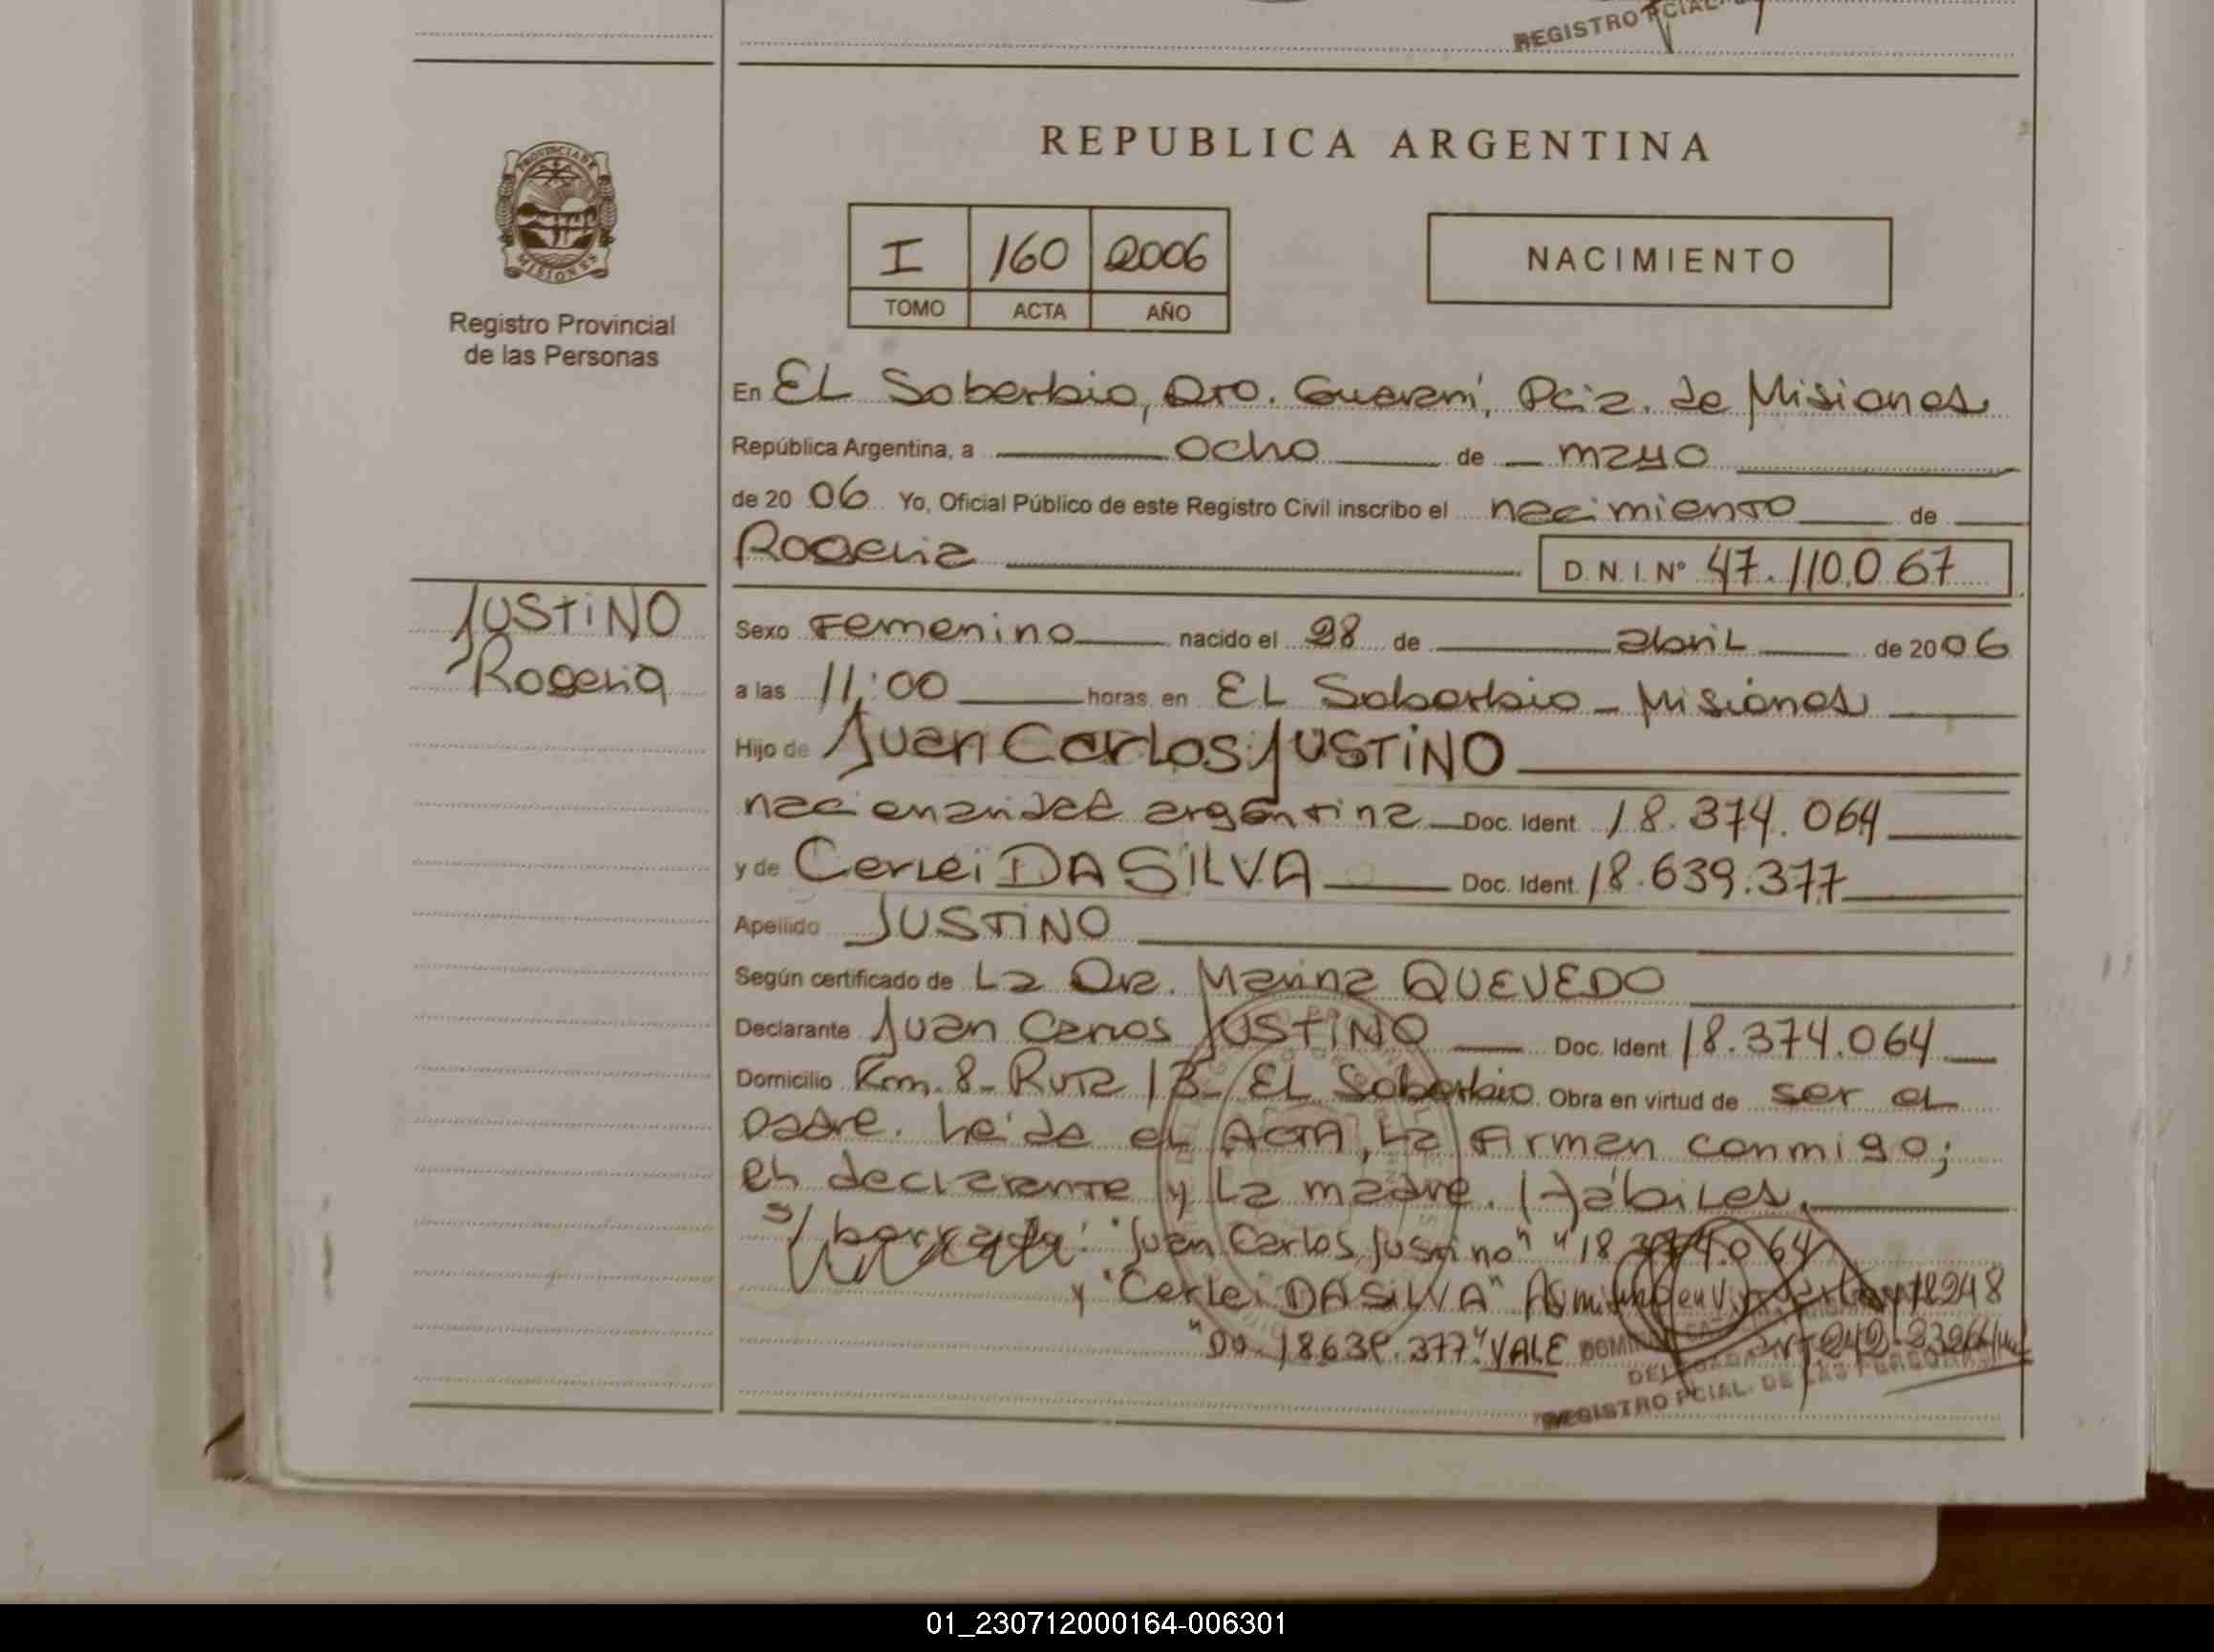 REGISTRO PCIAL
REPUBLICA ARGENTINA
PROVINCIA DE
MISIONES
I 160 2006
TOMO ACTA AÑO
NACIMIENTO
Registro Provincial
de las Personas
En EL Soberbio, Dto. Guaraní, Pcia. de Misiones
República Argentina, a ocho de mayo
de 20 06 Yo, Oficial Público de este Registro Civil inscribo el nacimiento de
Rogeria D.N.I.Nº 47.110.067
JUSTINO
Rogeria
Sexo Femenino nacido el 28 de abril de 2006
a las 11:00 horas, en EL Soberbio - Misiones
Hijo de Juan Carlos JUSTINO
argentina Doc. Ident. 18.374.064
y de Cerlei DA SILVA Doc. Ident. 18.639.377
Apellido JUSTINO
Según certificado de La Dra. Marina QUEVEDO
Declarante Juan Carlos JUSTINO Doc. Ident 18.374.064
Domicilio Km. 8 - Ruta 13 - EL Soberbio. Obra en virtud de ser el
padre. Leída el ACTA, La firman conmigo;
el declarante y La madre. Hábiles.
s/ borrado: "Juan Carlos Justino" "18.374.064"
y "Cerlei DA SILVA" 18248
"DO. 18639.377" VALE
REGISTRO PCIAL. DE LAS PERSONAS
01_230712000164-006301